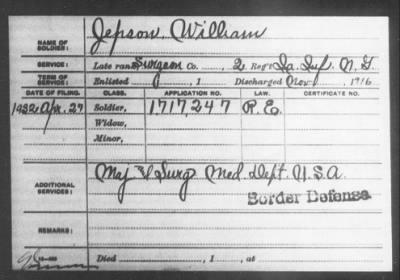 NAME OF SOLDIER: Jepson, William
SERVICE: Late rank Surgeon Co. , 2 Reg't Ia. Inf. N. G.
TERM OF SERVICE: Enlisted , 1 Discharged Nov , 1916
DATE OF FILING. CLASS. APPLICATION NO. LAW. CERTIFICATE NO.
1932 Apr. 27 Soldier, 1,717,247 R.E.
Widow,
Minor,
ADDITIONAL SERVICES: Maj & Surg Med. Dept. U.S.A.
Border Defense
REMARKS:
Died , 1 , at